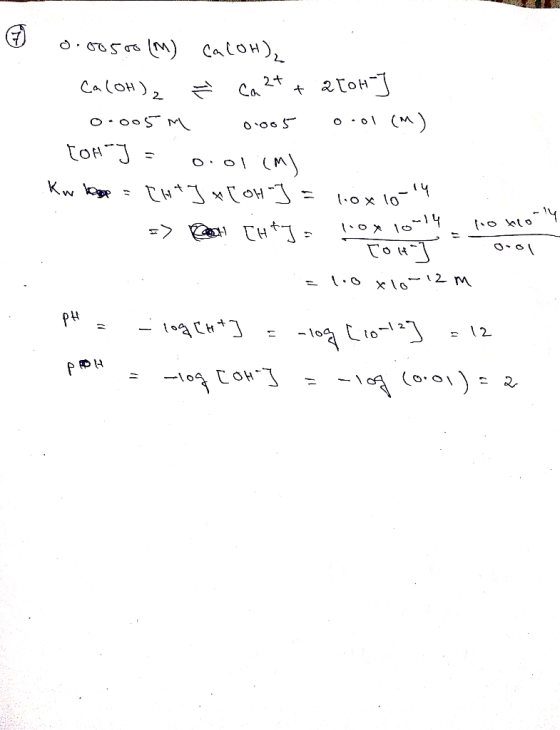 ⑦ 0.00500 (M) Ca(OH)₂
Ca(OH)₂ ⇌ Ca²⁺ + 2[OH⁻]
0.005 M 0.005 0.01 (M)
[OH⁻] = 0.01 (M)
Kw = [H⁺] x [OH⁻] = 1.0 x 10⁻¹⁴
=> [H⁺] = 1.0 x 10⁻¹⁴ / [OH⁻] = 1.0 x 10⁻¹⁴ / 0.01
= 1.0 x 10⁻¹² M
pH = - log [H⁺] = -log [10⁻¹²] = 12
pOH = -log [OH⁻] = -log (0.01) = 2